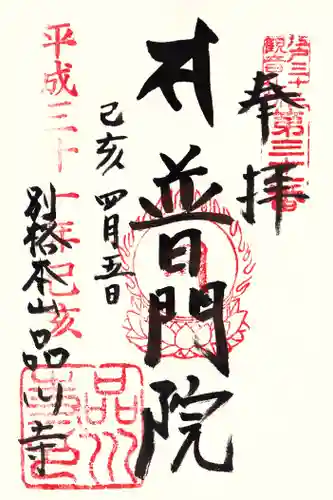 奉拝
第三十一番
普門院
己亥 四月五日
平成三十一年己亥
別格本山品川寺